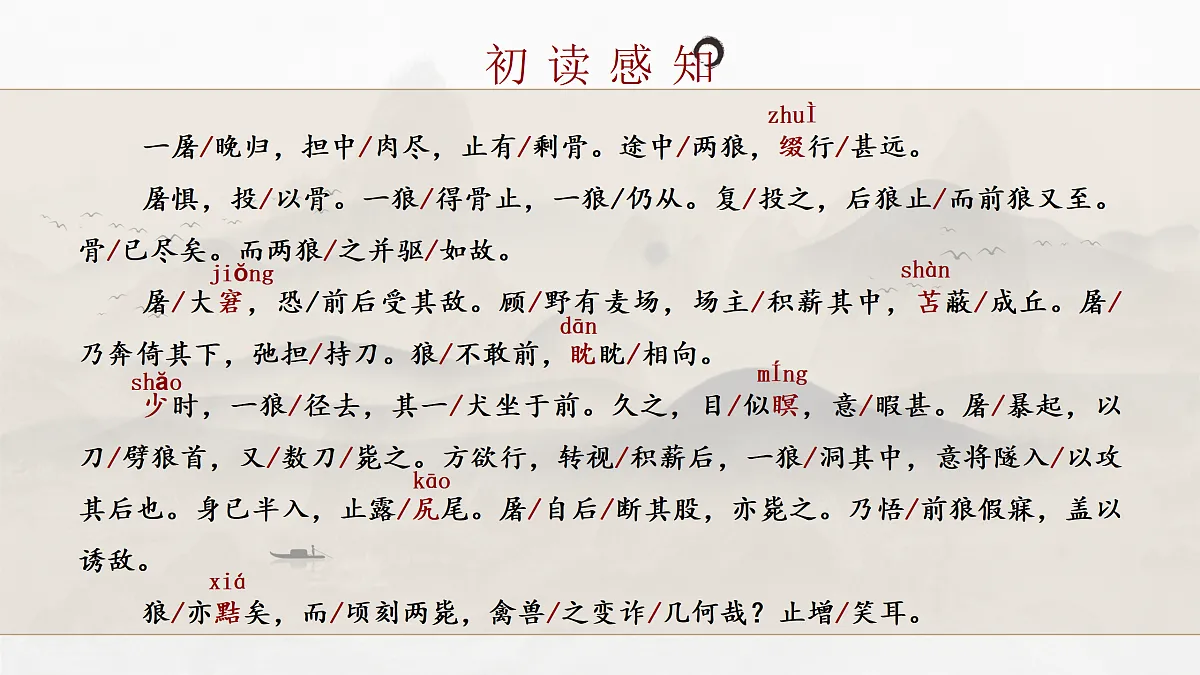 初读感知
zhuÌ
一屠/晚归，担中/肉尽，止有/剩骨。途中/两狼，缀行/甚远。
屠惧，投/以骨。一狼/得骨止，一狼/仍从。复/投之，后狼止/而前狼又至。
骨/已尽矣。而两狼/之并驱/如故。
jiǒng
shàn
屠/大窘，恐/前后受其敌。顾/野有麦场，场主/积薪其中，苫蔽/成丘。屠/
dān
乃奔倚其下，弛担/持刀。狼/不敢前，眈眈/相向。
shǎo
mÍng
少时，一狼/径去，其一/犬坐于前。久之，目/似瞑，意/暇甚。屠/暴起，以
刀/劈狼首，又/数刀/毙之。方欲行，转视/积薪后，一狼/洞其中，意将隧入/以攻
kāo
其后也。身已半入，止露/尻尾。屠/自后/断其股，亦毙之。乃悟/前狼假寐，盖以
诱敌。
xiá
狼/亦黠矣，而/顷刻两毙，禽兽/之变诈/几何哉？止增/笑耳。